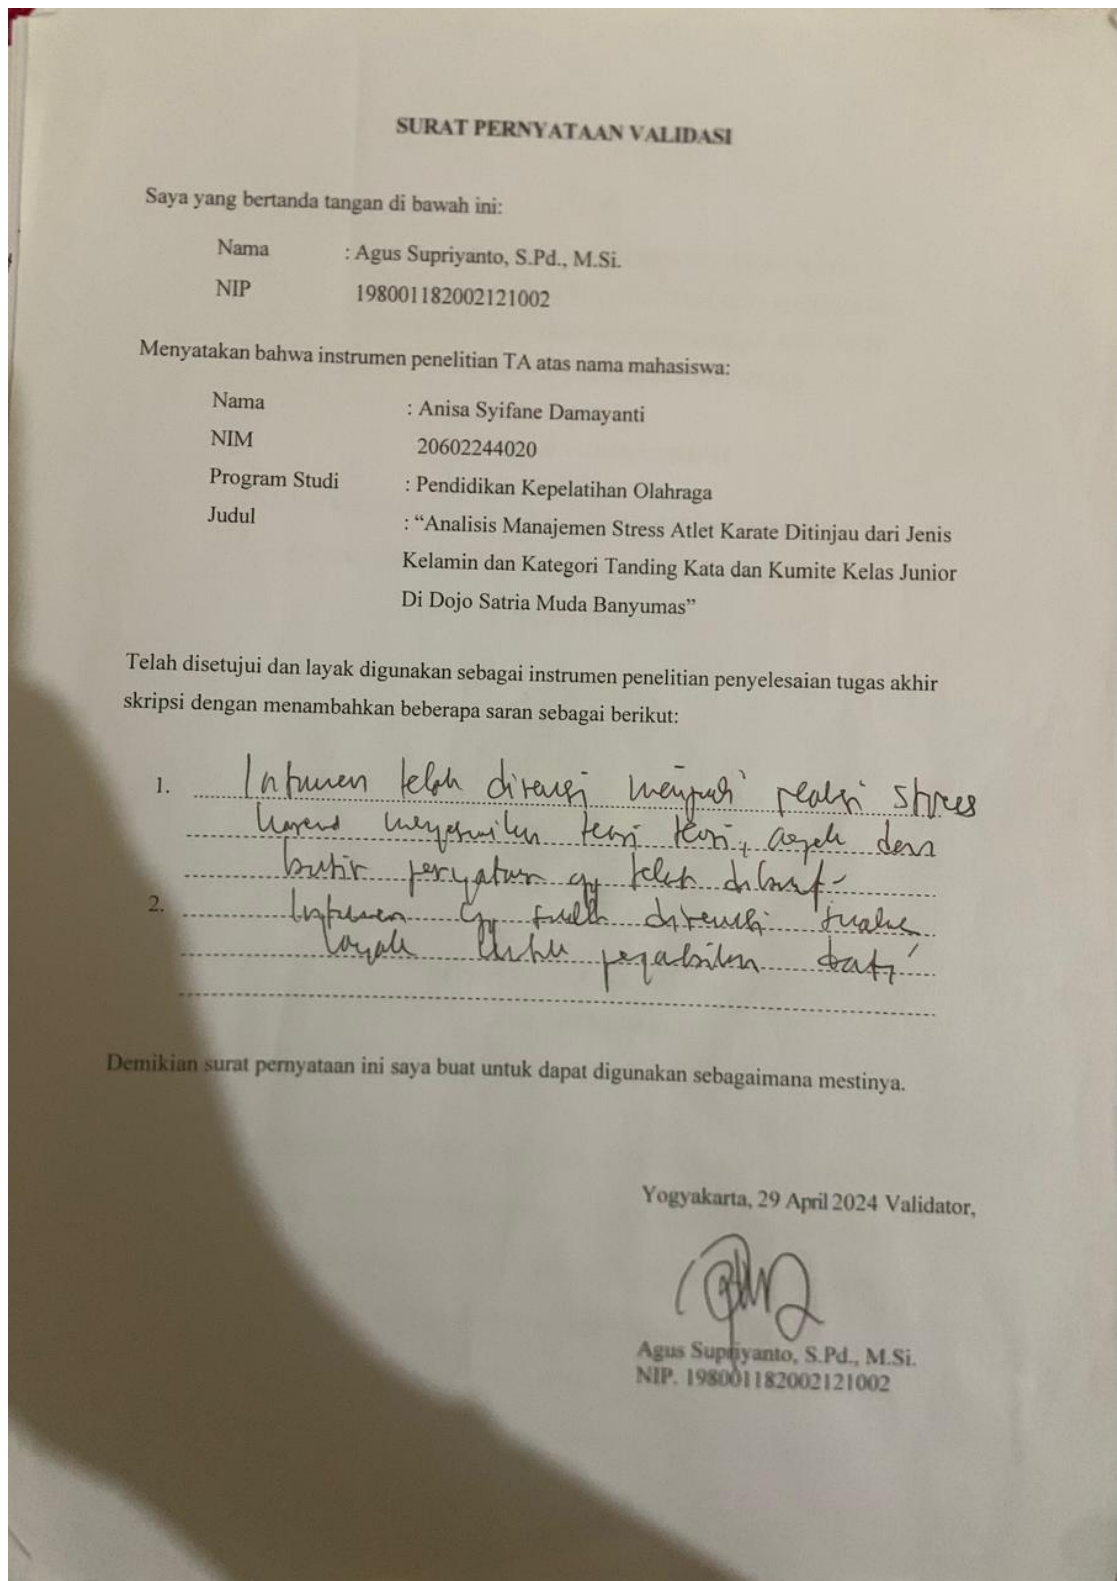 SURAT PERNYATAAN VALIDASI
Saya yang bertanda tangan di bawah ini:
Nama : Agus Supriyanto, S.Pd., M.Si.
NIP 198001182002121002
Menyatakan bahwa instrumen penelitian TA atas nama mahasiswa:
Nama : Anisa Syifane Damayanti
NIM 20602244020
Program Studi : Pendidikan Kepelatihan Olahraga
Judul : “Analisis Manajemen Stress Atlet Karate Ditinjau dari Jenis
Kelamin dan Kategori Tanding Kata dan Kumite Kelas Junior
Di Dojo Satria Muda Banyumas”
Telah disetujui dan layak digunakan sebagai instrumen penelitian penyelesaian tugas akhir
skripsi dengan menambahkan beberapa saran sebagai berikut:
1. telah direvisi menjadi reaksi stress
teori, dan
butir telah dibuat
2. direvisi
layak untuk data
Demikian surat pernyataan ini saya buat untuk dapat digunakan sebagaimana mestinya.
Yogyakarta, 29 April 2024 Validator,
Agus Supriyanto, S.Pd., M.Si.
NIP. 198001182002121002